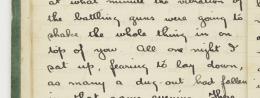 at what minute the vibration of
the battling guns were going to
shake the whole thing in on
top of you. All one night I
sat up, fearing to lay down,
as many a dug-out had fallen
in that same evening. There